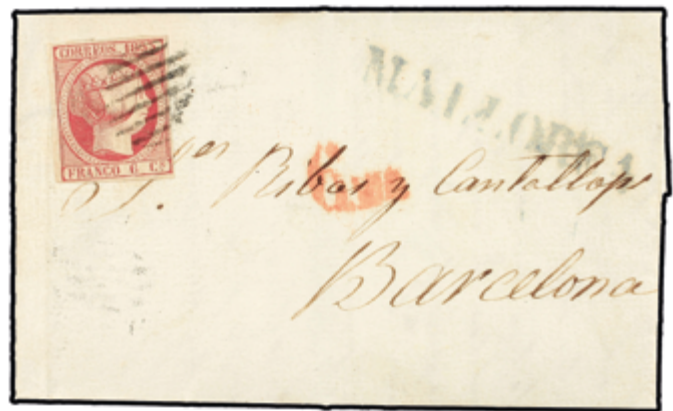 CORREOS 1853
FRANCO 6 Cs
MALLORCA
Ribas y Cantallops
Barcelona